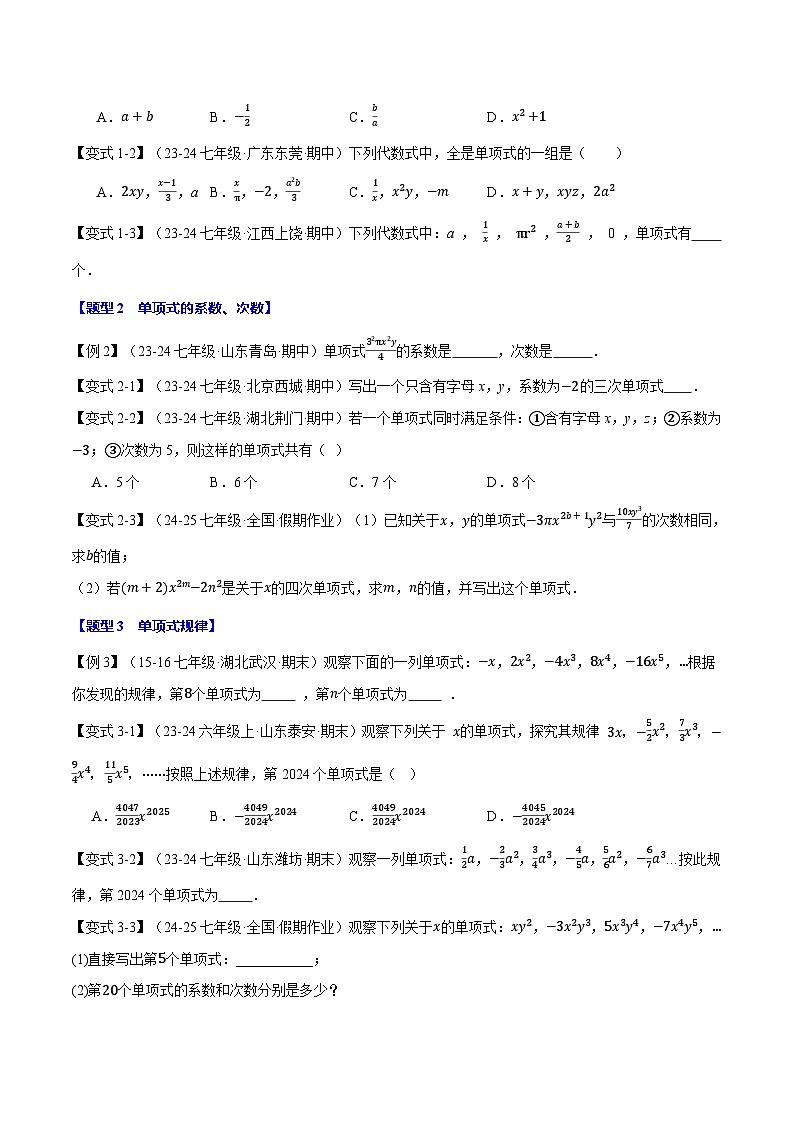 A．a + b B．−1/2 C．b/a D．x² + 1
【变式 1-2】（23-24 七年级·广东东莞·期中）下列代数式中，全是单项式的一组是（　　）
A．2xy，(x−1)/3，a B．x/π，−2，a²b/3 C．1/x，x²y，−m D．x + y，xyz，2a²
【变式 1-3】（23-24 七年级·江西上饶·期中）下列代数式中：a ， 1/x ， πr² ，(a+b)/2 ， 0 ，单项式有____
个．
【题型 2　单项式的系数、次数】
【例 2】（23-24 七年级·山东青岛·期中）单项式3²πx²y/4的系数是______，次数是_____．
【变式 2-1】（23-24 七年级·北京西城·期中）写出一个只含有字母 x，y，系数为−2的三次单项式____．
【变式 2-2】（23-24 七年级·湖北荆门·期中）若一个单项式同时满足条件：①含有字母 x，y，z；②系数为
−3；③次数为 5，则这样的单项式共有（ ）
A．5 个 B．6 个 C．7 个 D．8 个
【变式 2-3】（24-25 七年级·全国·假期作业）（1）已知关于x，y的单项式−3πx²ᵇ⁺¹y²与10xy³/7的次数相同，
求b的值；
（2）若(m + 2)x²ᵐ−2n²是关于x的四次单项式，求m，n的值，并写出这个单项式．
【题型 3　单项式规律】
【例 3】（15-16 七年级·湖北武汉·期末）观察下面的一列单项式：−x，2x²，−4x³，8x⁴，−16x⁵，…根据
你发现的规律，第8个单项式为_____ ，第n个单项式为_____ ．
【变式 3-1】（23-24 六年级上·山东泰安·期末）观察下列关于 x的单项式，探究其规律 3x，−5/2x²，7/3x³，−
9/4x⁴，11/5x⁵，……按照上述规律，第 2024 个单项式是（ ）
A．4047/2023x²⁰²⁵ B．−4049/2024x²⁰²⁴ C．4049/2024x²⁰²⁴ D．−4045/2024x²⁰²⁴
【变式 3-2】（23-24 七年级·山东潍坊·期末）观察一列单项式：1/2a，−2/3a²，3/4a³，−4/5a，5/6a²，−6/7a³…按此规
律，第 2024 个单项式为_____．
【变式 3-3】（24-25 七年级·全国·假期作业）观察下列关于x的单项式：xy²，−3x²y³，5x³y⁴，−7x⁴y⁵，…
(1)直接写出第5个单项式：___________；
(2)第20个单项式的系数和次数分别是多少？